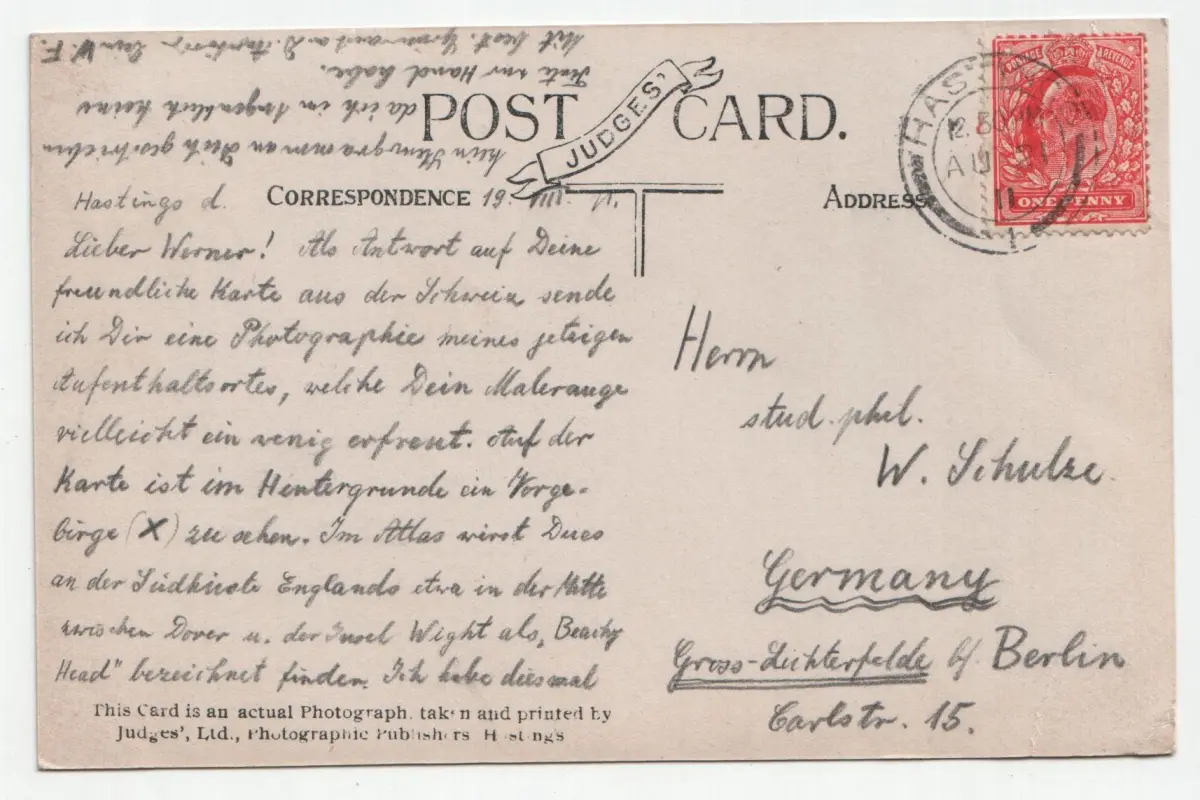 POST CARD.
JUDGES'
CORRESPONDENCE
ADDRESS
POSTAGE REVENUE
ONE PENNY
HAST
12.50
AU 31
11
1
Hastings d. 19. VIII. 11.
Lieber Werner! Als Antwort auf Deine
freundliche Karte aus der Schweiz sende
ich Dir eine Photographie meines jetzigen
Aufenthaltsortes, welche Dein Malerauge
vielleicht ein wenig erfreut. Auf der
Karte ist im Hintergrunde ein Vorge-
birge (X) zu sehen. Im Atlas wirst Du es
an der Südküste Englands etwa in der Mitte
zwischen Dover u. der Insel Wight als „Beachy
Head" bezeichnet finden. Ich habe diesmal
kein Stenogramm an Dich geschrieben
da ich im Augenblick keine
Tinte zur Hand habe.
Mit best. Dein W. F.
Herrn
stud. phil.
W. Schulze.
Germany
Gross-Lichterfelde bf Berlin
Carlstr. 15.
This Card is an actual Photograph, taken and printed by
Judges', Ltd., Photographic Publishers Hastings